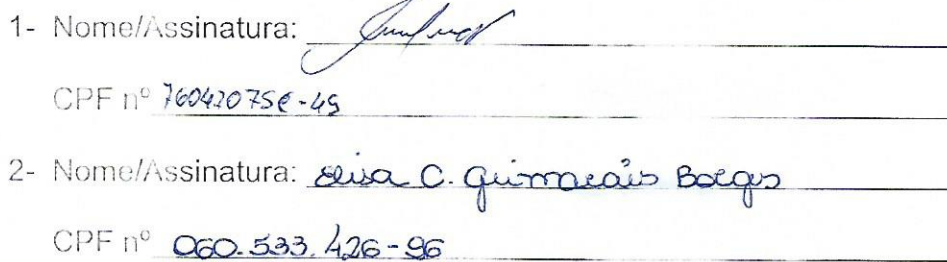 1- Nome/Assinatura:
CPF nº
2- Nome/Assinatura: Elisa C. Guimarães Borges
CPF nº 060.533.426-96